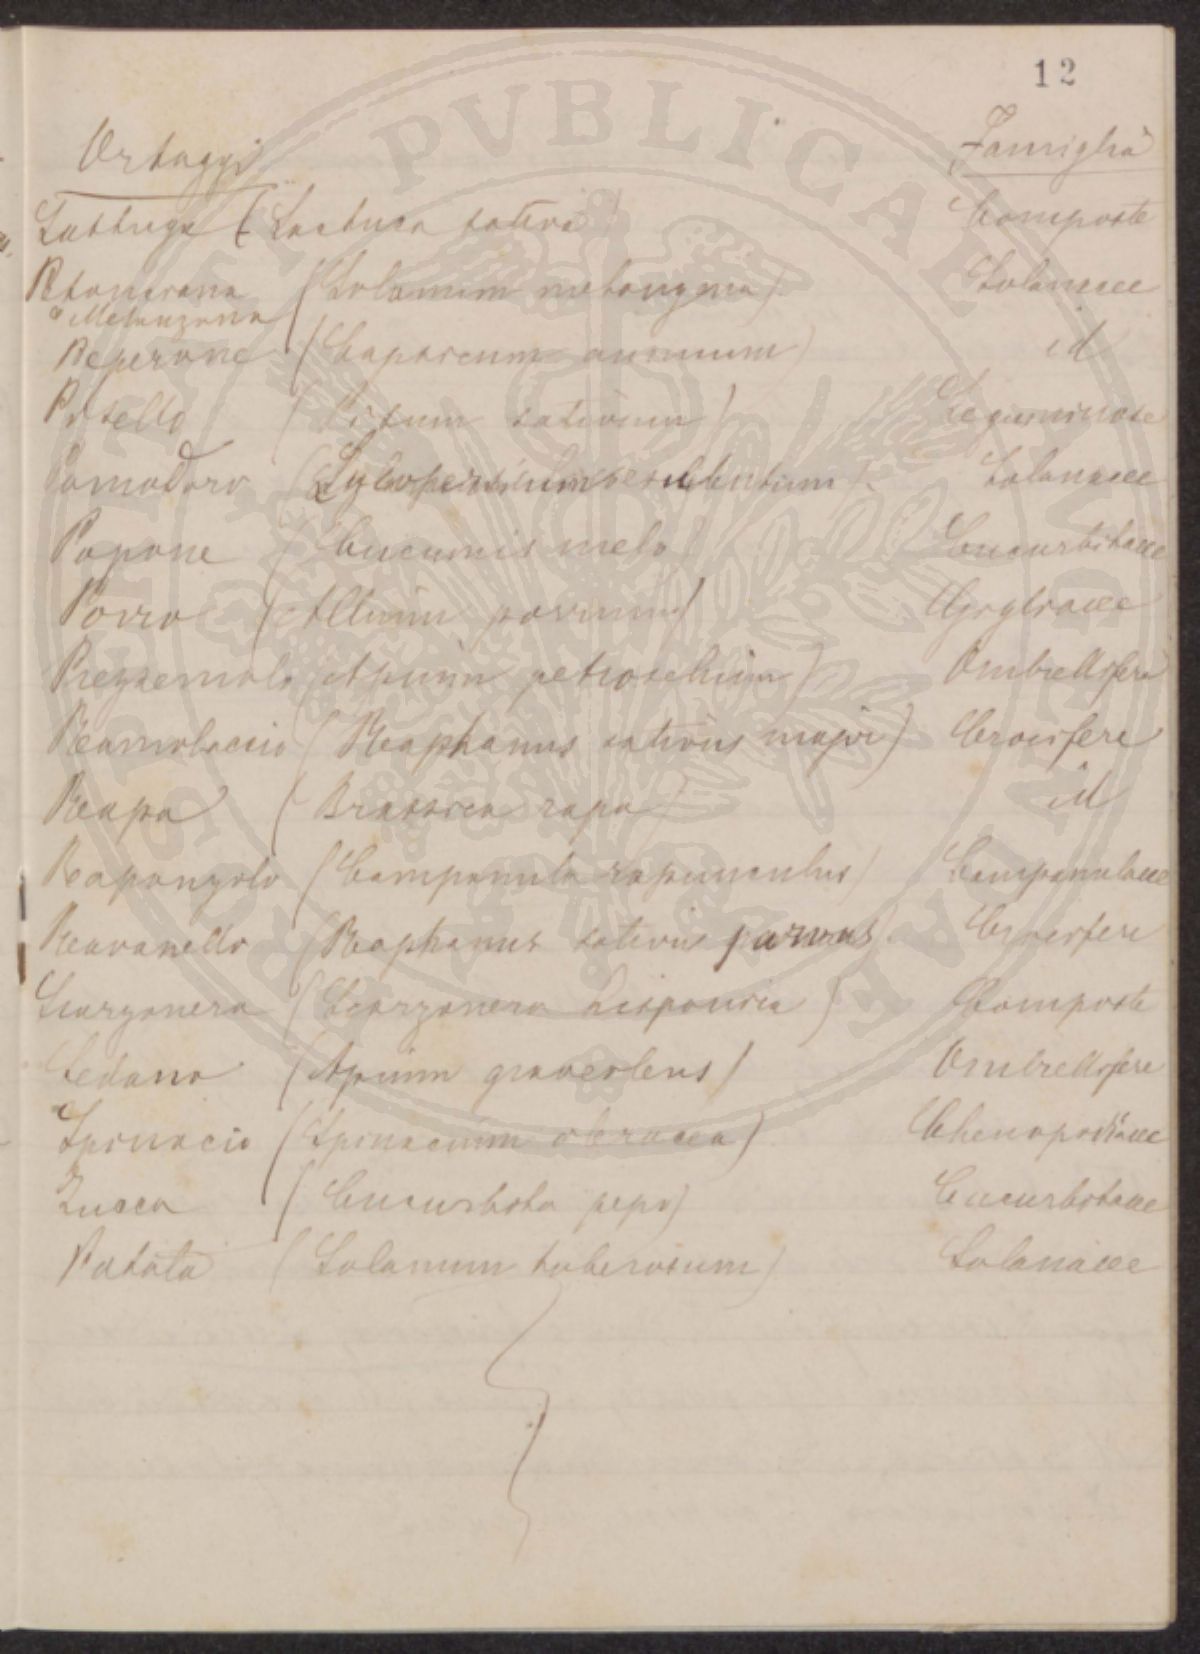 12
Ortaggi Famiglia
Lattuga (Lactuca sativa) Composte
Petonciana (Solanum melongena) Solanacee
o Melanzana
Peperone (Capsicum annuum) id
Pisello (Pisum sativum) Leguminose
Pomodoro (Lycopersicum esculentum). Solanacee
Popone (Cucumis melo) Cucurbitacee
Porro (Allium porrum)
Prezzemolo (Apium petroselium) Ombrellifere
Ramolaccio (Raphanus sativus major) Crocifere
Rapa (Brassica rapa) id
Raponzolo (Campanula rapunculus) Campanulacee
Ravanello (Raphanus sativus parvus). Crocifere
Scorzonera (Scorzonera hispanica) Composte
Sedano (Apium graveolens) Ombrellifere
Spinacio (Spinacium oleracea) Chenopodiacee
Zucca (Cucurbita pepo) Cucurbitacee
Patata (Solanum tuberosum) Solanacee